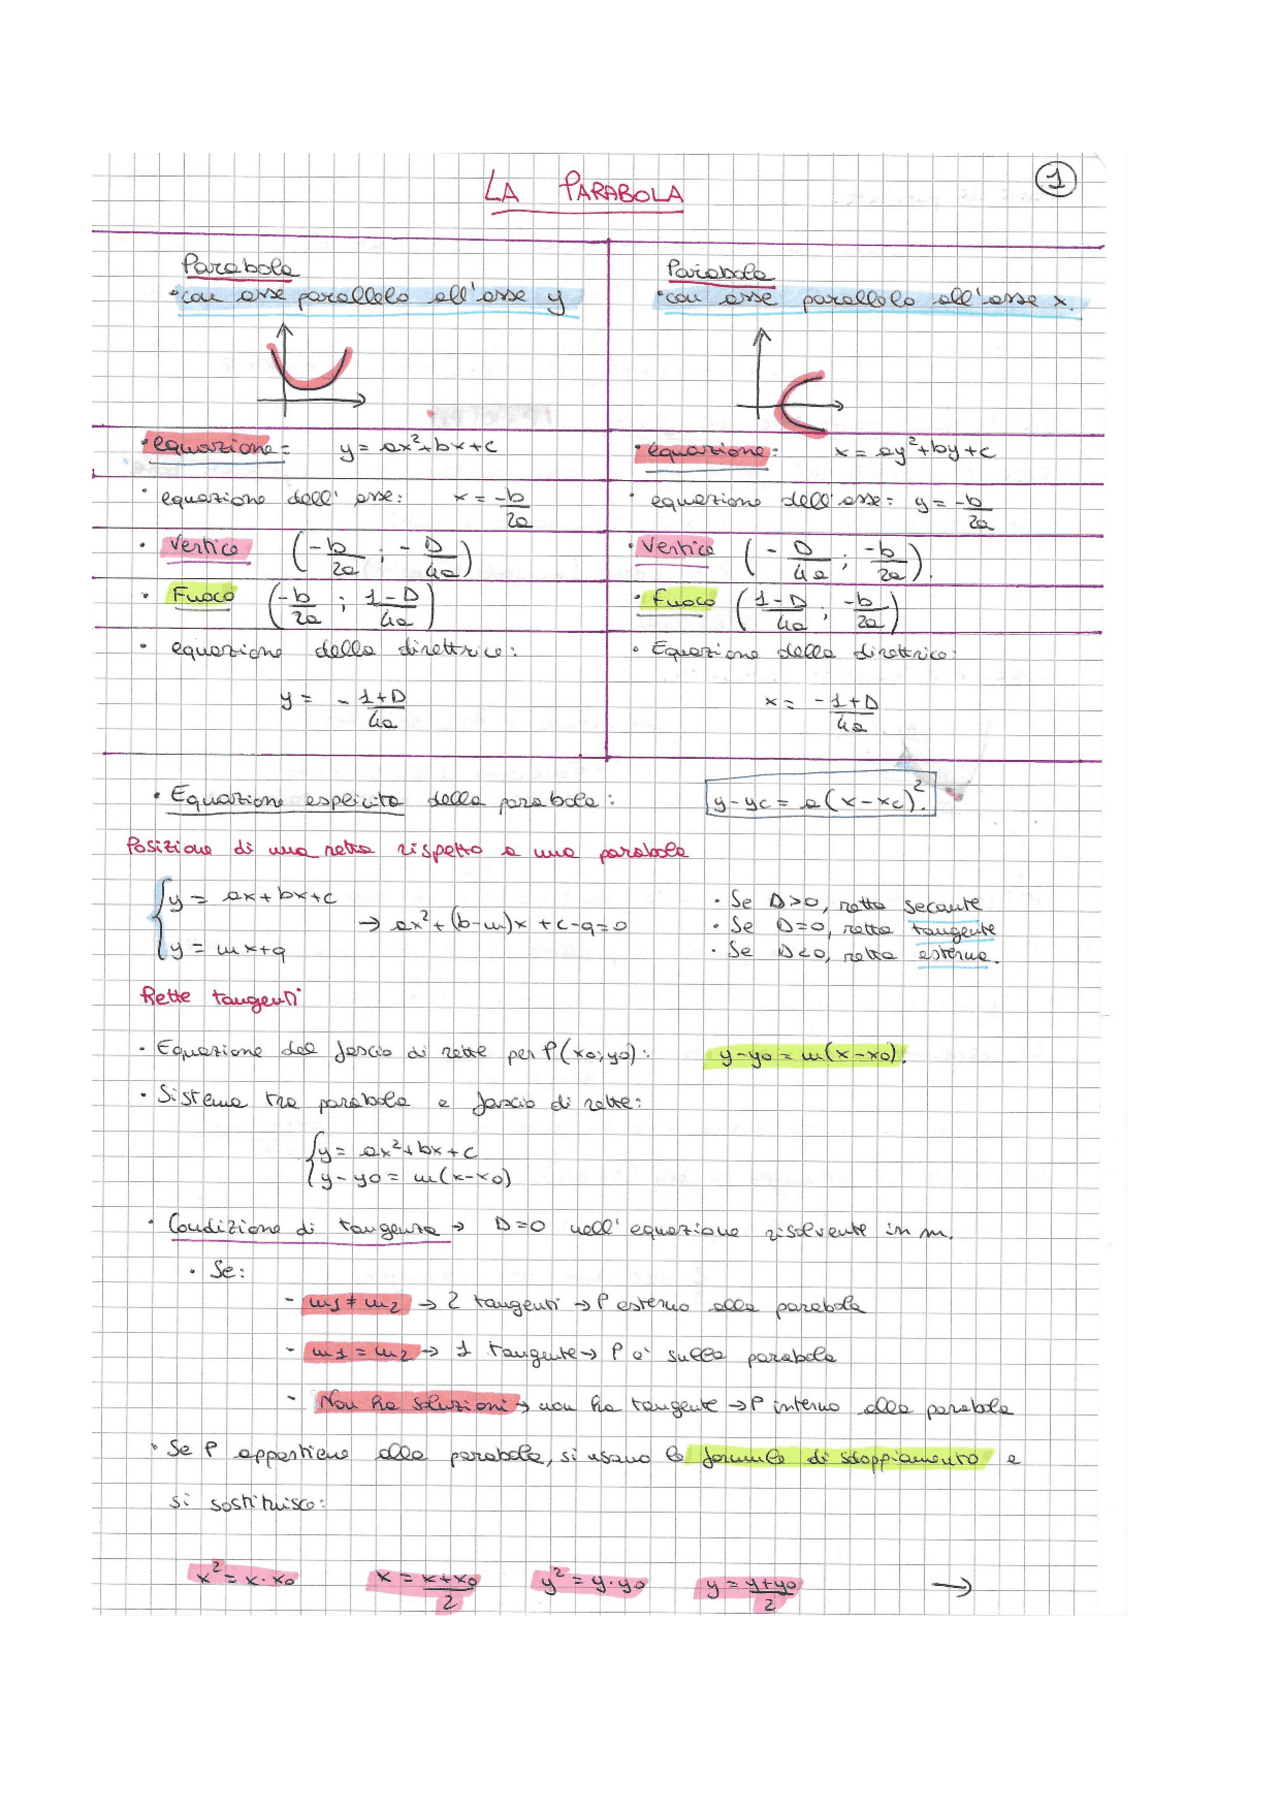 LA PARABOLA
1
Parabola
• con asse parallelo all'asse y
Parabola
• con asse parallelo all'asse x.
• equazione: y = ax²+bx+c
• equazione: x = ay²+by+c
• equazione dell'asse: x = -b/2a
• equazione dell'asse: y = -b/2a
• Vertice (-b/2a ; -D/4a)
• Vertice (-D/4a ; -b/2a).
• Fuoco (-b/2a ; 1-D/4a)
• Fuoco (1-D/4a ; -b/2a)
• equazione della direttrice:
y = - 1+D/4a
• Equazione della direttrice:
x = - 1+D/4a
• Equazione espeicita della parabola: y-yc = a(x-xc)².
Posizione di una retta rispetto a una parabola
{y = ax+bx+c
{y = mx+q
→ ax²+(b-m)x+c-q=0
• Se D>0, retta secante
• Se D=0, retta tangente
• Se D<0, retta esterna.
Rette tangenti
• Equazione del fascio di rette per P(x0;y0): y-y0 = m(x-x0).
• Sistema tra parabola e fascio di rette:
{y = ax²+bx+c
{y-y0 = m(x-x0)
• Condizione di tangenza → D=0 nell'equazione risolvente in m.
• Se:
- m1≠m2 → 2 tangenti → P esterno alla parabola
- m1=m2 → 1 tangente → P è sulla parabola
- Non ha soluzioni → non ha tangente → P interno alla parabola
• Se P appartiene alla parabola, si usano le formule di sdoppiamento e
si sostituisce:
x² = x·x0 x = x+x0/2 y² = y·y0 y = y+y0/2 →